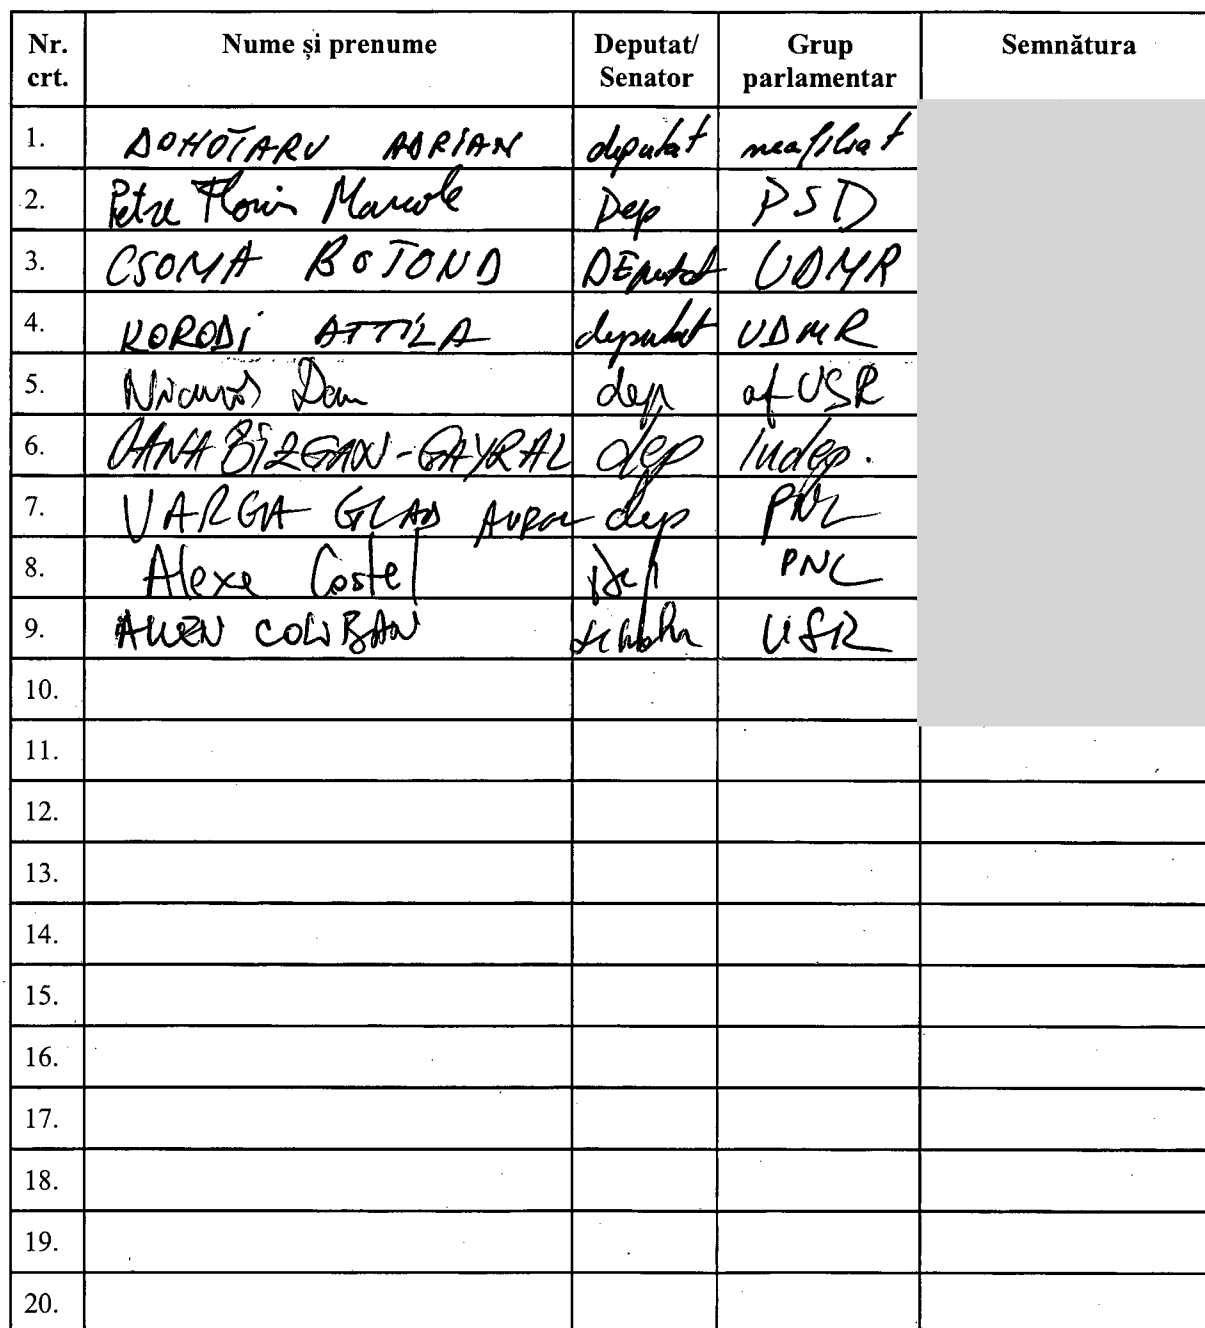 Nr. crt. Nume și prenume Deputat/ Senator Grup parlamentar Semnătura
1. DOHOTARU ADRIAN deputat neafiliat
2. Petre Florin Manole Dep PSD
3. CSOMA BOTOND DEputat UDMR
4. KORODi ATTiLA deputat UDMR
5. Nicușor Dan dep USR
6. OANA BÎZGAN-GAYRAL dep Indep.
7. VARGA GLAD AUREL dep PNL
8. Alexe Costel Dep PNL
9. ALLEN COLIBAN USR
10.
11.
12.
13.
14.
15.
16.
17.
18.
19.
20.